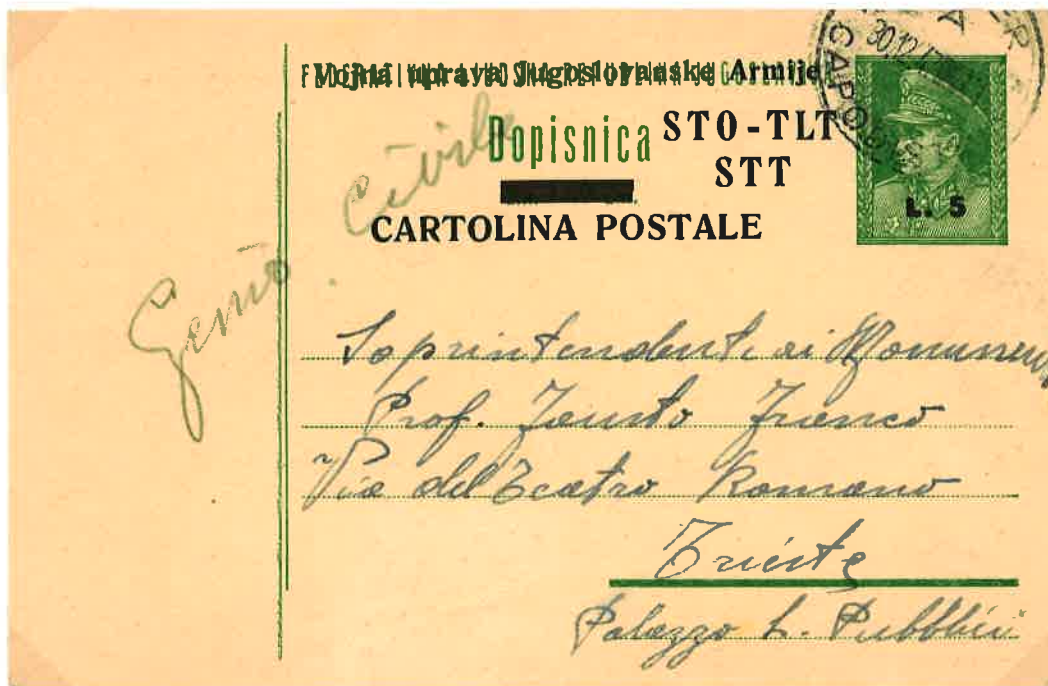 Vojna uprava Jugoslovanske Armije
Dopisnica STO-TLT
STT
CARTOLINA POSTALE
L. 5
30.12.
CAPOD
Genio Civile
Soprintendente ai Monumen
Prof. Fausto Franco
Via del Teatro Romano
Trieste
Palazzo L. Pubblici